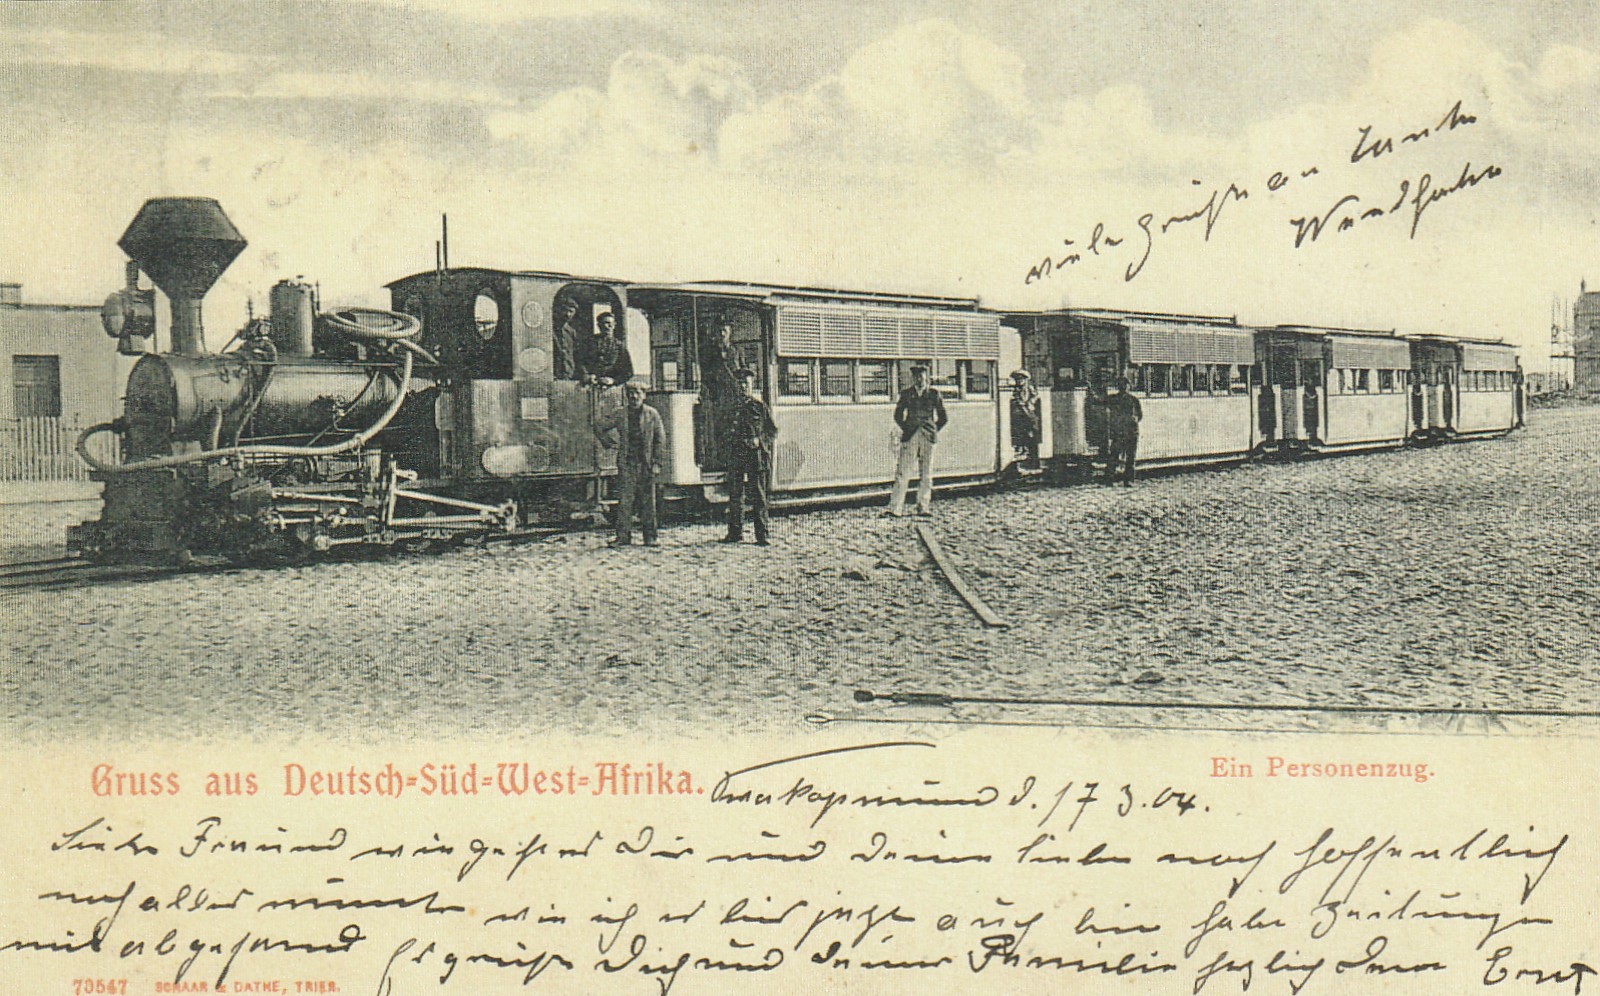 viele Grüße an Tante
Gruss aus Deutsch=Süd=West=Afrika.
Ein Personenzug.
Swakopmund d. 17 3.04.
Lieber Freund wie geht es Dir und deine liebe noch hoffentlich
noch alles munter wie ich es bis jezt auch bin habe Zeitungen
mit abgesand Es grüßt Dich und deine Familie herzlich Dein Ernst
73547 SCHAAR & DATHE, TRIER.